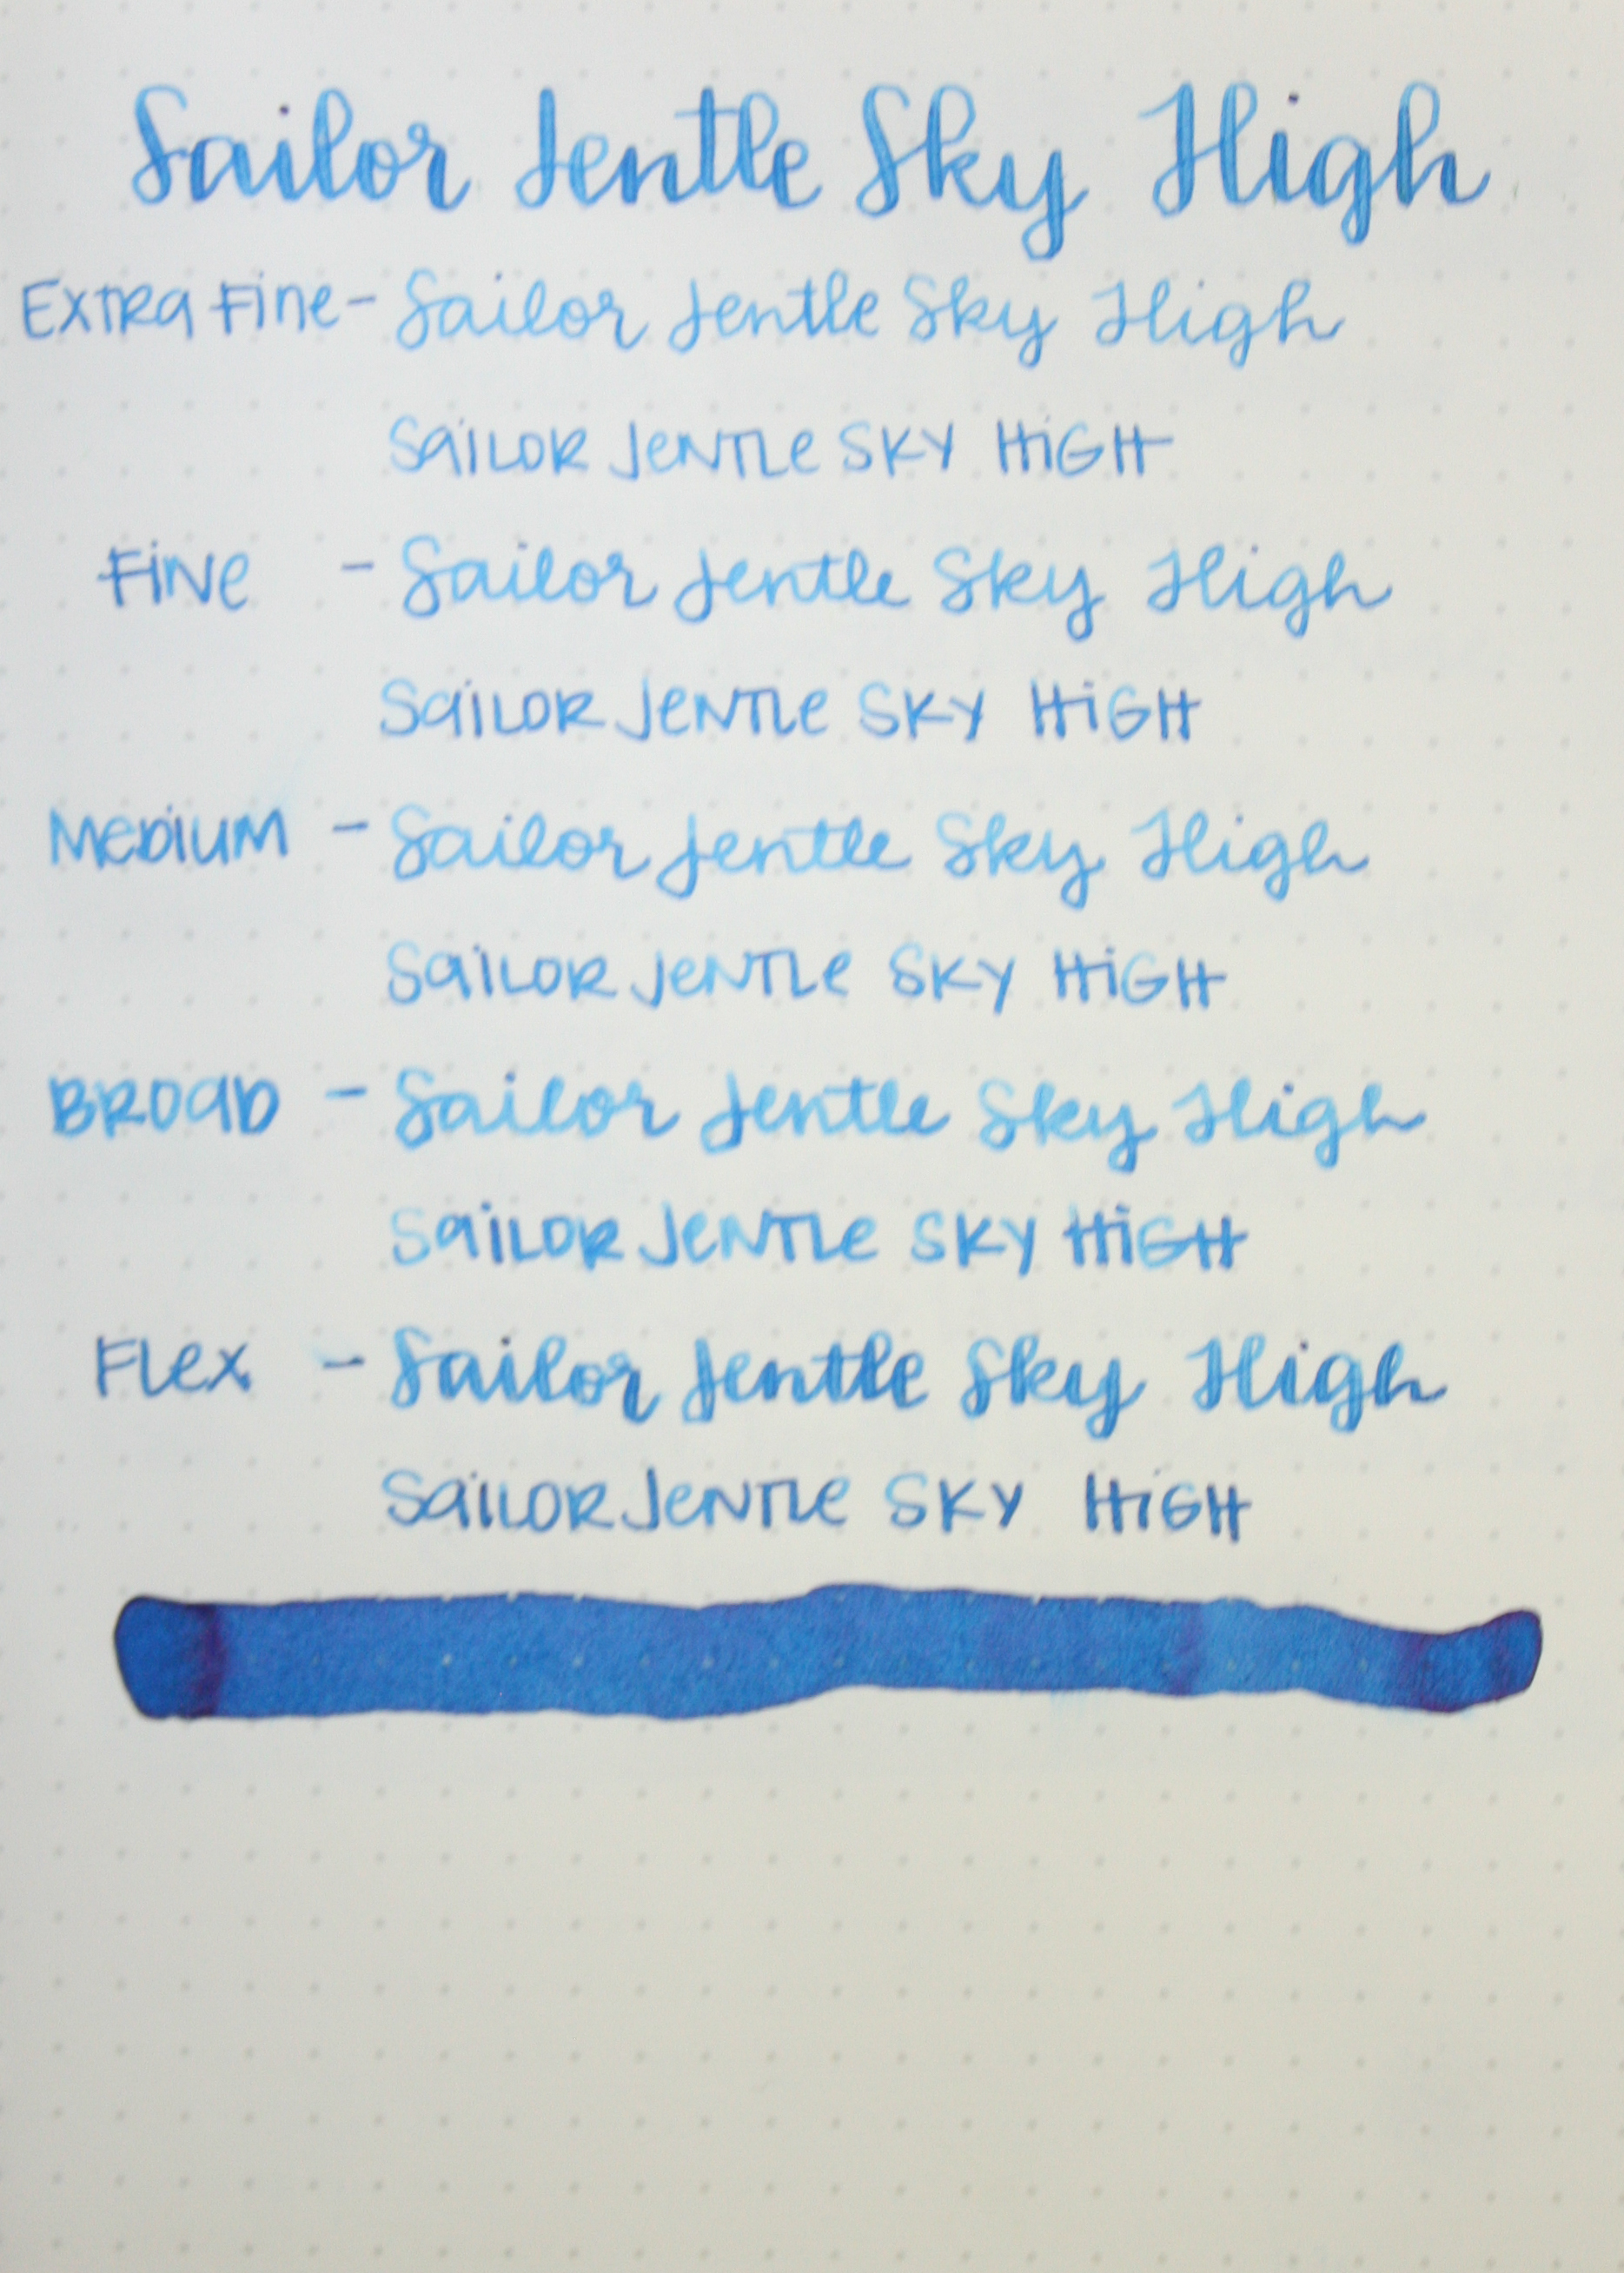 Sailor Jentle Sky High
Extra Fine - Sailor Jentle Sky High
SaiLOR JeNTLe SKY HiGH
FiNe - Sailor Jentle Sky High
SaiLOR JeNTLe SKY HiGH
MeDiUM - Sailor Jentle Sky High
SaiLOR JeNTLe SKY HiGH
BROaD - Sailor Jentle Sky High
SaiLOR JeNTLe SKY HiGH
FLex - Sailor Jentle Sky High
SaiLOR JeNTLe SKY HiGH